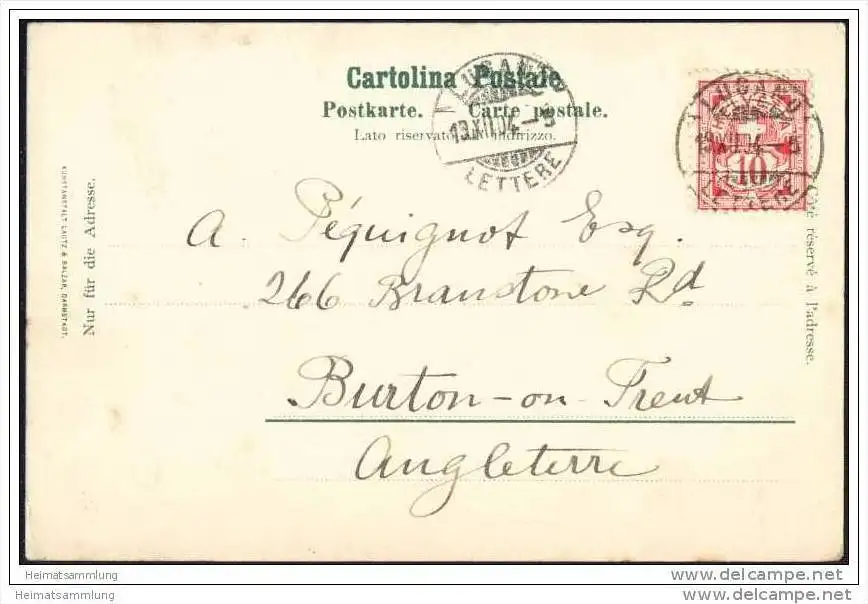 Cartolina Postale
Postkarte. Carte postale.
Lato riservato all'indirizzo.
LUGANO
LETTERE
LUGANO
HELVETIA
10
Nur für die Adresse.
KUNSTANSTALT LAUTZ & BALZAR, DARMSTADT.
Côté réservé à l'adresse.
A. Péquignot Esq.
266 Branstone Rd
Burton-on-Trent
Angleterre
Heimatsammlung
Heimatsammlung
www.delcampe.net
www.delcampe.net